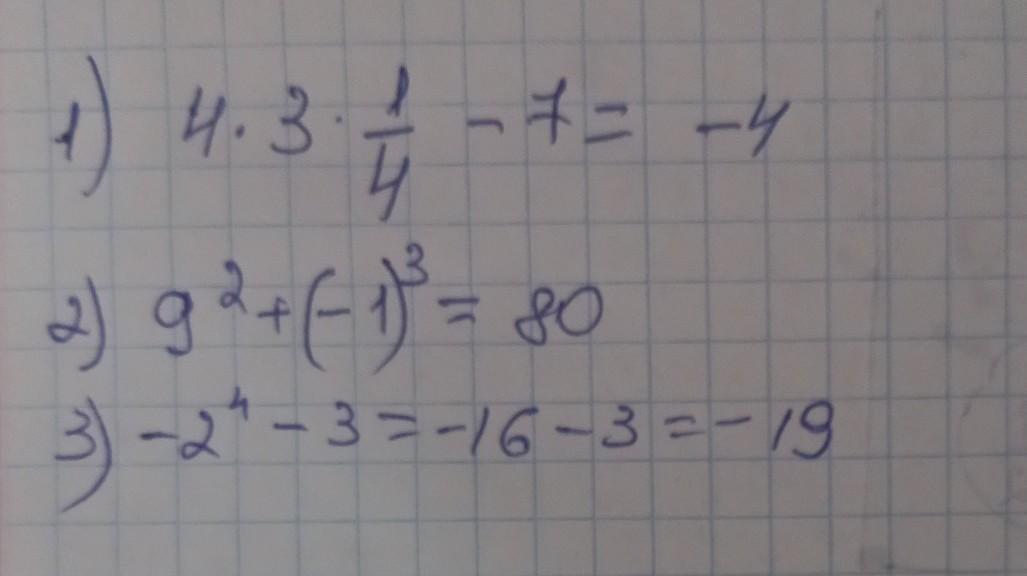 1) 4 · 3 · 1/4 - 7 = -4
2) 9² + (-1)³ = 80
3) -2⁴ - 3 = -16 - 3 = -19